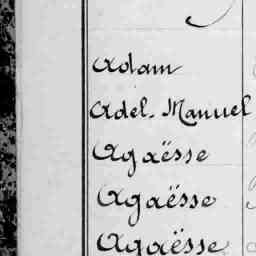 Adam
Adel. Manuel
Agaësse
Agaësse
Agaësse